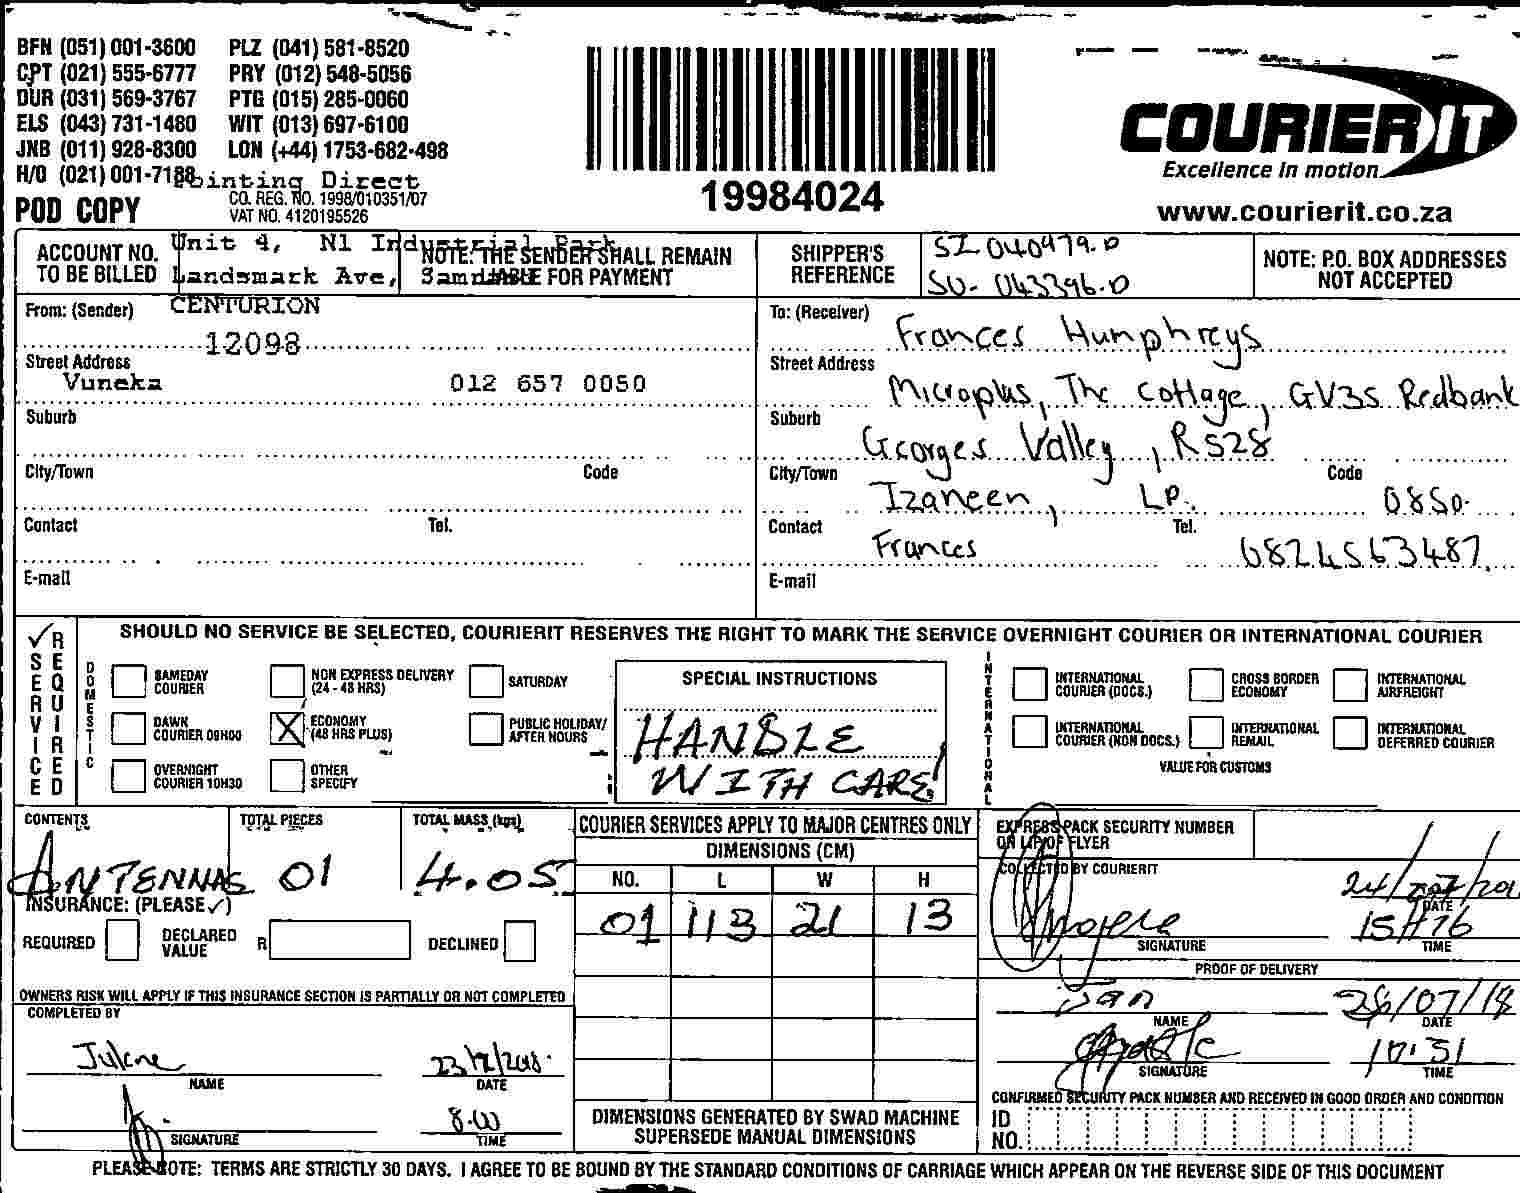 BFN (051) 001-3600 PLZ (041) 581-8520
CPT (021) 555-6777 PRY (012) 548-5056
DUR (031) 569-3767 PTG (015) 285-0060
ELS (043) 731-1480 WIT (013) 697-6100
JNB (011) 928-8300 LON (+44) 1753-682-498
H/O (021) 001-7188 Pointing Direct
POD COPY
CO. REG. NO. 1998/010351/07
VAT NO. 4120195526
19984024
COURIER IT
Excellence in motion
www.courierit.co.za
ACCOUNT NO. TO BE BILLED
Unit 4, N1 Industrial Park
Landsmark Ave,
CENTURION
NOTE: THE SENDER SHALL REMAIN
LIABLE FOR PAYMENT
SHIPPER'S REFERENCE
SI 040479.0
SO- 043396.0
NOTE: P.O. BOX ADDRESSES
NOT ACCEPTED
From: (Sender)
12098
Street Address
Vuneka 012 657 0050
Suburb
City/Town Code
Contact Tel.
E-mail
To: (Receiver) Frances Humphreys
Street Address
Microplus, The Cottage, GV35 Redbank
Suburb Georges Valley, R528
City/Town Tzaneen, LP. Code 0850.
Contact Frances Tel. 0824563487
E-mail
✓ SERVICE REQUIRED
SHOULD NO SERVICE BE SELECTED, COURIERIT RESERVES THE RIGHT TO MARK THE SERVICE OVERNIGHT COURIER OR INTERNATIONAL COURIER
DOMESTIC
SAMEDAY COURIER
NON EXPRESS DELIVERY (24 - 48 HRS)
SATURDAY
DAWN COURIER 09H00
X ECONOMY (48 HRS PLUS)
PUBLIC HOLIDAY/ AFTER HOURS
OVERNIGHT COURIER 10H30
OTHER SPECIFY
SPECIAL INSTRUCTIONS
HANDLE
WITH CARE!
INTERNATIONAL
INTERNATIONAL COURIER (DOCS.)
CROSS BORDER ECONOMY
INTERNATIONAL AIRFREIGHT
INTERNATIONAL COURIER (NON DOCS.)
INTERNATIONAL REMAIL
INTERNATIONAL DEFERRED COURIER
VALUE FOR CUSTOMS
CONTENTS TOTAL PIECES TOTAL MASS (kgs)
ANTENNAS 01 4.05
INSURANCE: (PLEASE ✓)
REQUIRED DECLARED VALUE R DECLINED
OWNERS RISK WILL APPLY IF THIS INSURANCE SECTION IS PARTIALLY OR NOT COMPLETED
COMPLETED BY
Julene
NAME DATE
SIGNATURE TIME
COURIER SERVICES APPLY TO MAJOR CENTRES ONLY
DIMENSIONS (CM)
NO. L W H
01 113 21 13
DIMENSIONS GENERATED BY SWAD MACHINE
SUPERSEDE MANUAL DIMENSIONS
EXPRESS PACK SECURITY NUMBER
OR LIP OF FLYER
COLLECTED BY COURIERIT
DATE
15H16
SIGNATURE TIME
PROOF OF DELIVERY
26/07/18
NAME DATE
SIGNATURE TIME
CONFIRMED SECURITY PACK NUMBER AND RECEIVED IN GOOD ORDER AND CONDITION
ID NO.
PLEASE NOTE: TERMS ARE STRICTLY 30 DAYS. I AGREE TO BE BOUND BY THE STANDARD CONDITIONS OF CARRIAGE WHICH APPEAR ON THE REVERSE SIDE OF THIS DOCUMENT